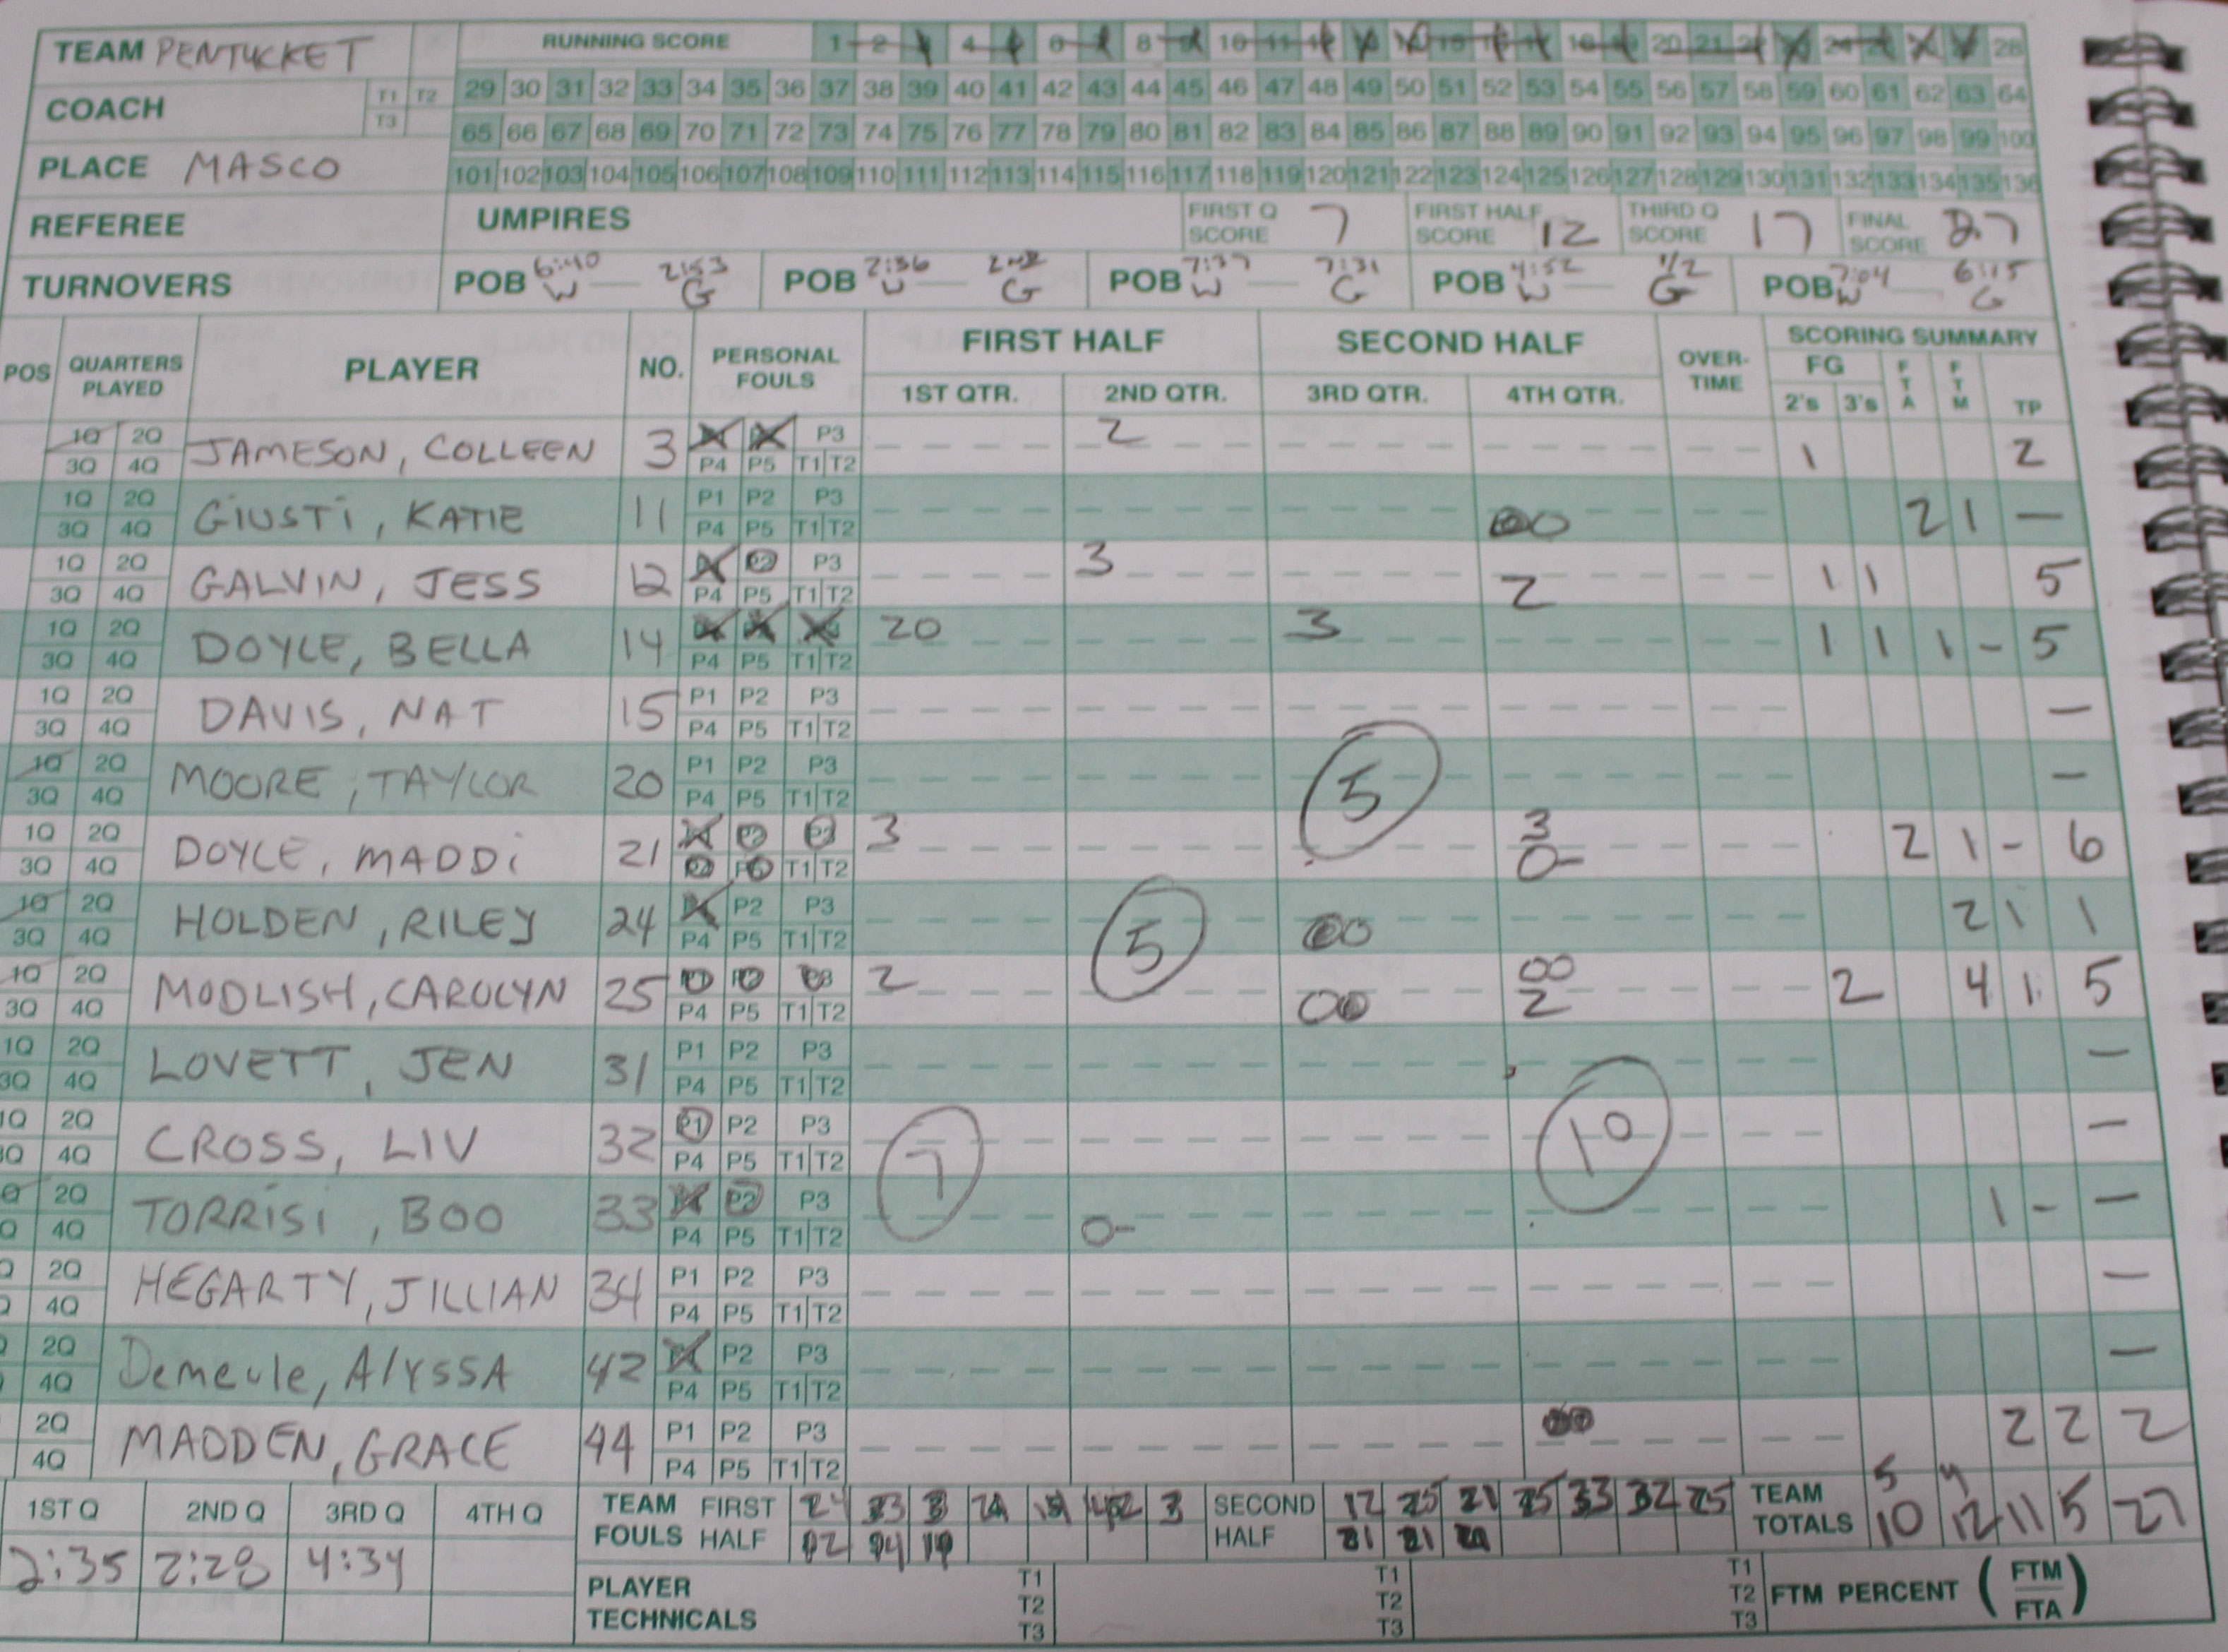 TEAM PENTUCKET RUNNING SCORE 1 2 4 6 8 10 11 20 21 28
COACH T1 T2 T3 29 30 31 32 33 34 35 36 37 38 39 40 41 42 43 44 45 46 47 48 49 50 51 52 53 54 55 56 57 58 59 60 61 62 63 64
65 66 67 68 69 70 71 72 73 74 75 76 77 78 79 80 81 82 83 84 85 86 87 88 89 90 91 92 93 94 95 96 97 98 99 100
PLACE MASCO 101 102 103 104 105 106 107 108 109 110 111 112 113 114 115 116 117 118 119 120 121 122 123 124 125 126 127 128 129 130 131 132 133 134 135 136
REFEREE UMPIRES FIRST Q SCORE 7 FIRST HALF SCORE 12 THIRD Q SCORE 17 FINAL SCORE 27
TURNOVERS POB 6:40 W — 2:53 G POB 2:36 W — 2ND G POB 7:37 W — 7:31 G POB 4:52 W — 1/2 G POB 7:04 W — 6:15 G
POS QUARTERS PLAYED PLAYER NO. PERSONAL FOULS FIRST HALF SECOND HALF OVER-TIME SCORING SUMMARY
1ST QTR. 2ND QTR. 3RD QTR. 4TH QTR. FG 2's 3's FTA FTM TP
1Q 2Q 3Q 4Q JAMESON, COLLEEN 3 P3 P4 P5 T1 T2 2 1 2
1Q 2Q 3Q 4Q GIUSTI, KATIE 11 P1 P2 P3 P4 P5 T1 T2 00 2 1 —
1Q 2Q 3Q 4Q GALVIN, JESS 12 P2 P3 P4 P5 T1 T2 3 2 1 1 5
1Q 2Q 3Q 4Q DOYLE, BELLA 14 P4 P5 T1 T2 20 3 1 1 1 - 5
1Q 2Q 3Q 4Q DAVIS, NAT 15 P1 P2 P3 P4 P5 T1 T2 —
1Q 2Q 3Q 4Q MOORE, TAYLOR 20 P1 P2 P3 P4 P5 T1 T2 5 —
1Q 2Q 3Q 4Q DOYLE, MADDI 21 T1 T2 3 3 0- 2 1 - 6
1Q 2Q 3Q 4Q HOLDEN, RILEY 24 P2 P3 P4 P5 T1 T2 5 00 2 1 1
1Q 2Q 3Q 4Q MODLISH, CAROLYN 25 P4 P5 T1 T2 2 00 00 2 2 4 1 5
1Q 2Q 3Q 4Q LOVETT, JEN 31 P1 P2 P3 P4 P5 T1 T2 —
1Q 2Q 3Q 4Q CROSS, LIV 32 P1 P2 P3 P4 P5 T1 T2 7 10 —
2Q 4Q TORRISI, BOO 33 P2 P3 P4 P5 T1 T2 0- 1 - —
2Q 4Q HEGARTY, JILLIAN 34 P1 P2 P3 P4 P5 T1 T2 —
2Q 4Q Demeule, AlYSSA 42 P2 P3 P4 P5 T1 T2 —
2Q 4Q MADDEN, GRACE 44 P1 P2 P3 P4 P5 T1 T2 00 2 2 2
1ST Q 2ND Q 3RD Q 4TH Q TEAM FOULS FIRST HALF 24 3 3 SECOND HALF 12 25 21 25 33 32 25 TEAM TOTALS 5 10 4 12 11 5 27
2:35 2:28 4:34 21 21
PLAYER TECHNICALS T1 T2 T3 T1 T2 T3 T1 T2 T3 FTM PERCENT (FTM FTA)